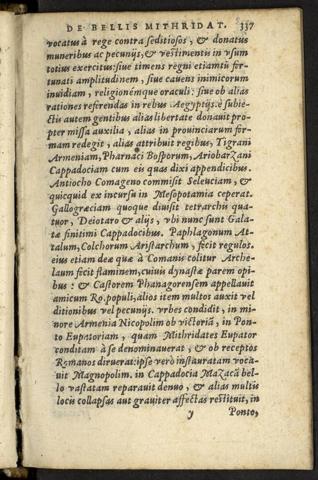 DE BELLIS MITHRIDAT. 337
vocatus à rege contra seditiosos, & donatus
muneribus ac pecunijs, & vestimentis in vsum
totius exercitus: siue timens regni etiamtũ for-
tunati amplitudinem, siue cauens inimicorum
inuidiam, religionémque oraculi: siue ob alias
rationes referendas in rebus Aegyptijs. è subie-
ctis autem gentibus alias libertate donauit pro-
pter missa auxilia, alias in prouinciarum for-
mam redegit, alias attribuit regibus, Tigrani
Armeniam, Pharnaci Bosporum, Ariobarzani
Cappadociam cum eis quas dixi appendicibus.
Antiocho Comageno commisit Seleuciam, &
quicquid ex incursu in Mesopotamia ceperat.
Gallogræciam quoque diuisit tetrarchis qua-
tuor, Deiotaro & alijs, vbi nunc sunt Gala-
tæ finitimi Cappadocibus. Paphlagonum At-
talum, Colchorum Aristarchum, fecit regulos.
eius etiam deæ quæ à Comanis colitur Arche-
laum fecit flaminem, cuiuis dynastæ parem opi-
bus: & Castorem Phanagorensem appellauit
amicum Ro. populi, alios item multos auxit vel
ditionibus vel pecunijs. vrbes condidit, in mi-
nore Armenia Nicopolim ob victoriã, in Pon-
to Eupatoriam, quam Mithridates Eupator
conditam à se denominauerat, & ob receptos
Romanos diruerat: ipse verò instauratam voca-
uit Magnopolim. in Cappadocia Mazacã bel-
lo vastatam reparauit denuo, & alias multis
locis collapsas aut grauiter affectas restituit, in
y Ponto,